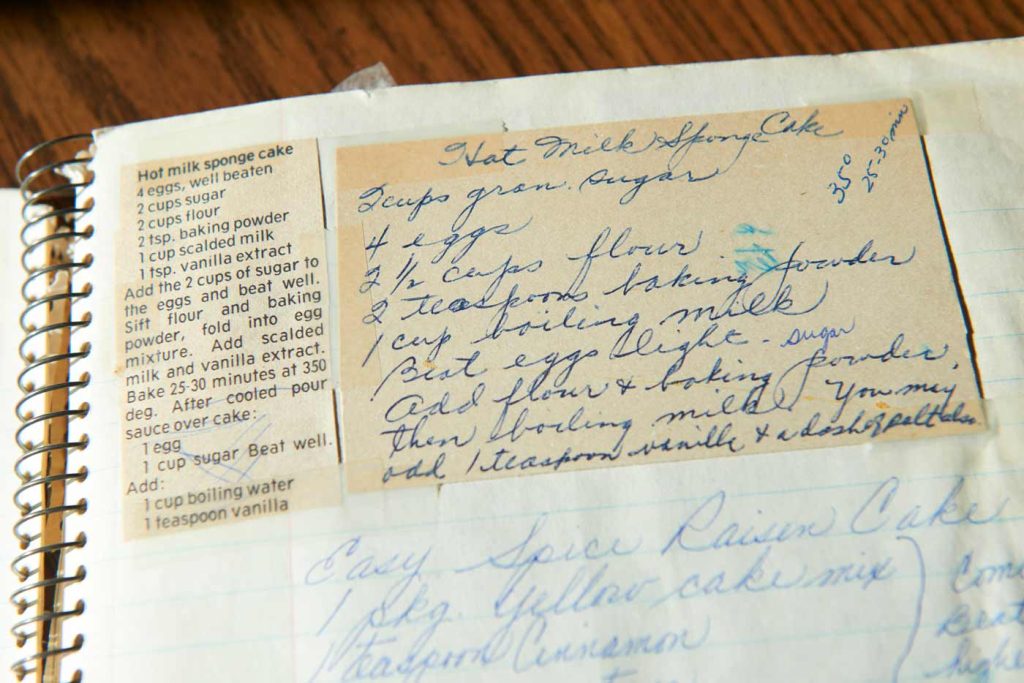 Hot milk sponge cake
4 eggs, well beaten
2 cups sugar
2 cups flour
2 tsp. baking powder
1 cup scalded milk
1 tsp. vanilla extract
Add the 2 cups of sugar to
the eggs and beat well.
Sift flour and baking
powder, fold into egg
mixture. Add scalded
milk and vanilla extract.
Bake 25-30 minutes at 350
deg. After cooled pour
sauce over cake:
1 egg
1 cup sugar Beat well.
Add:
1 cup boiling water
1 teaspoon vanilla
Hot Milk Sponge Cake
350
25-30 min
2 cups gran. sugar
4 eggs
2 1/2 cups flour
2 teaspoons baking powder
1 cup boiling milk
Beat eggs light - sugar
Add flour & baking powder,
then boiling milk. You may
add 1 teaspoon vanilla & a dash of salt also
Easy Spice Raisen Cake
1 pkg. yellow cake mix
1 teaspoon Cinnamon
Beat